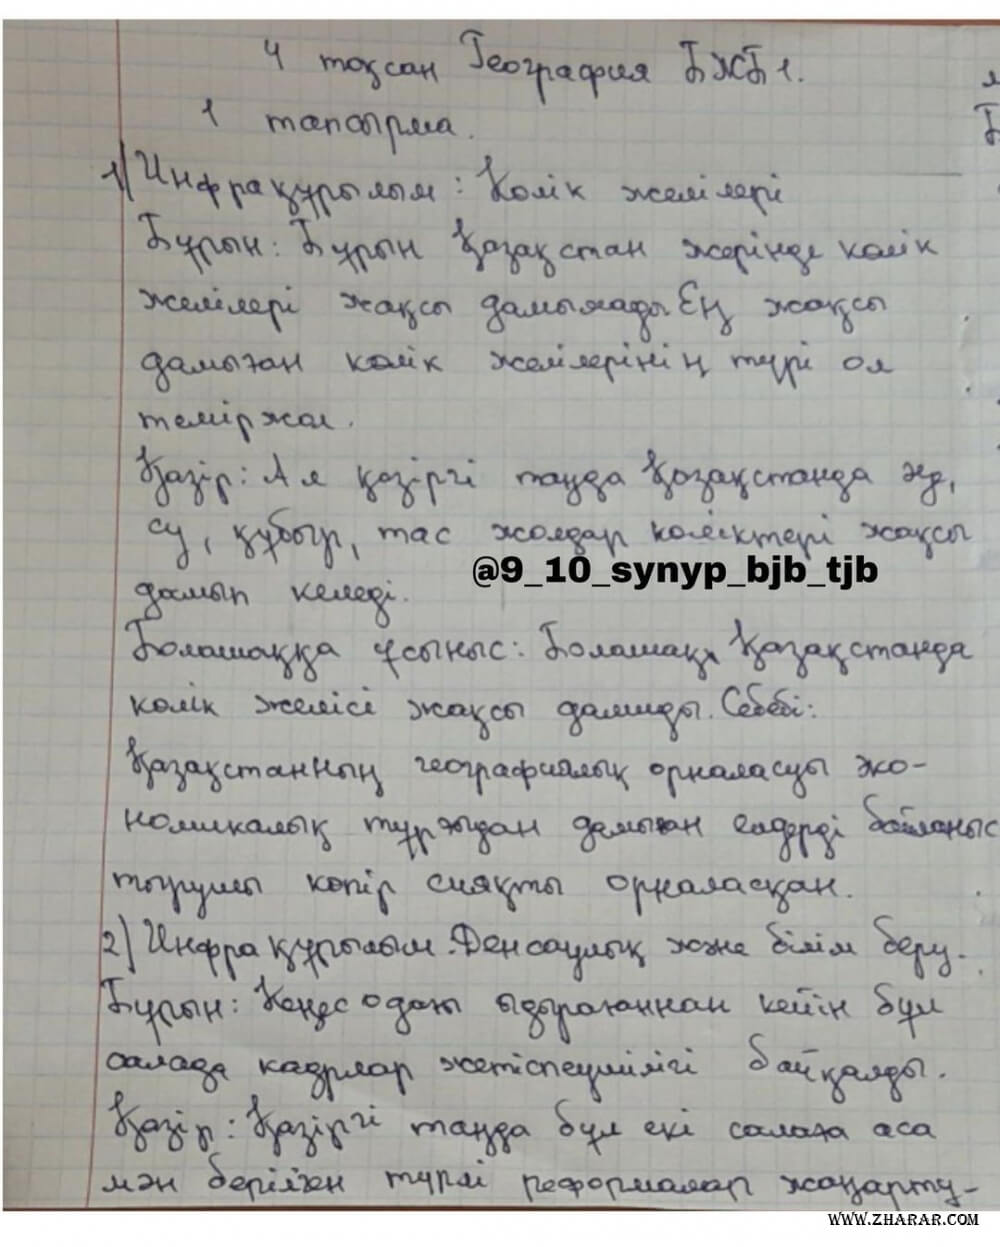 4 тоқсан География БЖБ 1.
1 тапсырма.
1) Инфрақұрылым: Көлік желілері
Бұрын: Бұрын Қазақстан жерінде көлік
желілері жақсы дамымады. Ең жақсы
дамыған көлік желілерінің түрі ол
теміржол.
Қазір: Ал қазіргі таңда Қазақстанда әуе,
су, құбыр, тас жолдар көліктері жақсы
@9_10_synyp_bjb_tjb
дамып келеді.
Болашаққа ұсыныс: Болашақ Қазақстанда
көлік желісі жақсы дамиды. Себебі:
Қазақстанның географиялық орналасуы эко-
номикалық тұрғыдан дамыған елдерді байланыс
тырушы көпір сияқты орналасқан.
2) Инфрақұрылым. Денсаулық және білім беру.
Бұрын: Кеңес одағы ыдырағаннан кейін бұл
салада кадрлар жетіспеушілігі байқалды.
Қазір: Қазіргі таңда бұл екі салаға аса
мән берілген түрлі реформалар жаңарту-
WWW.ZHARAR.COM